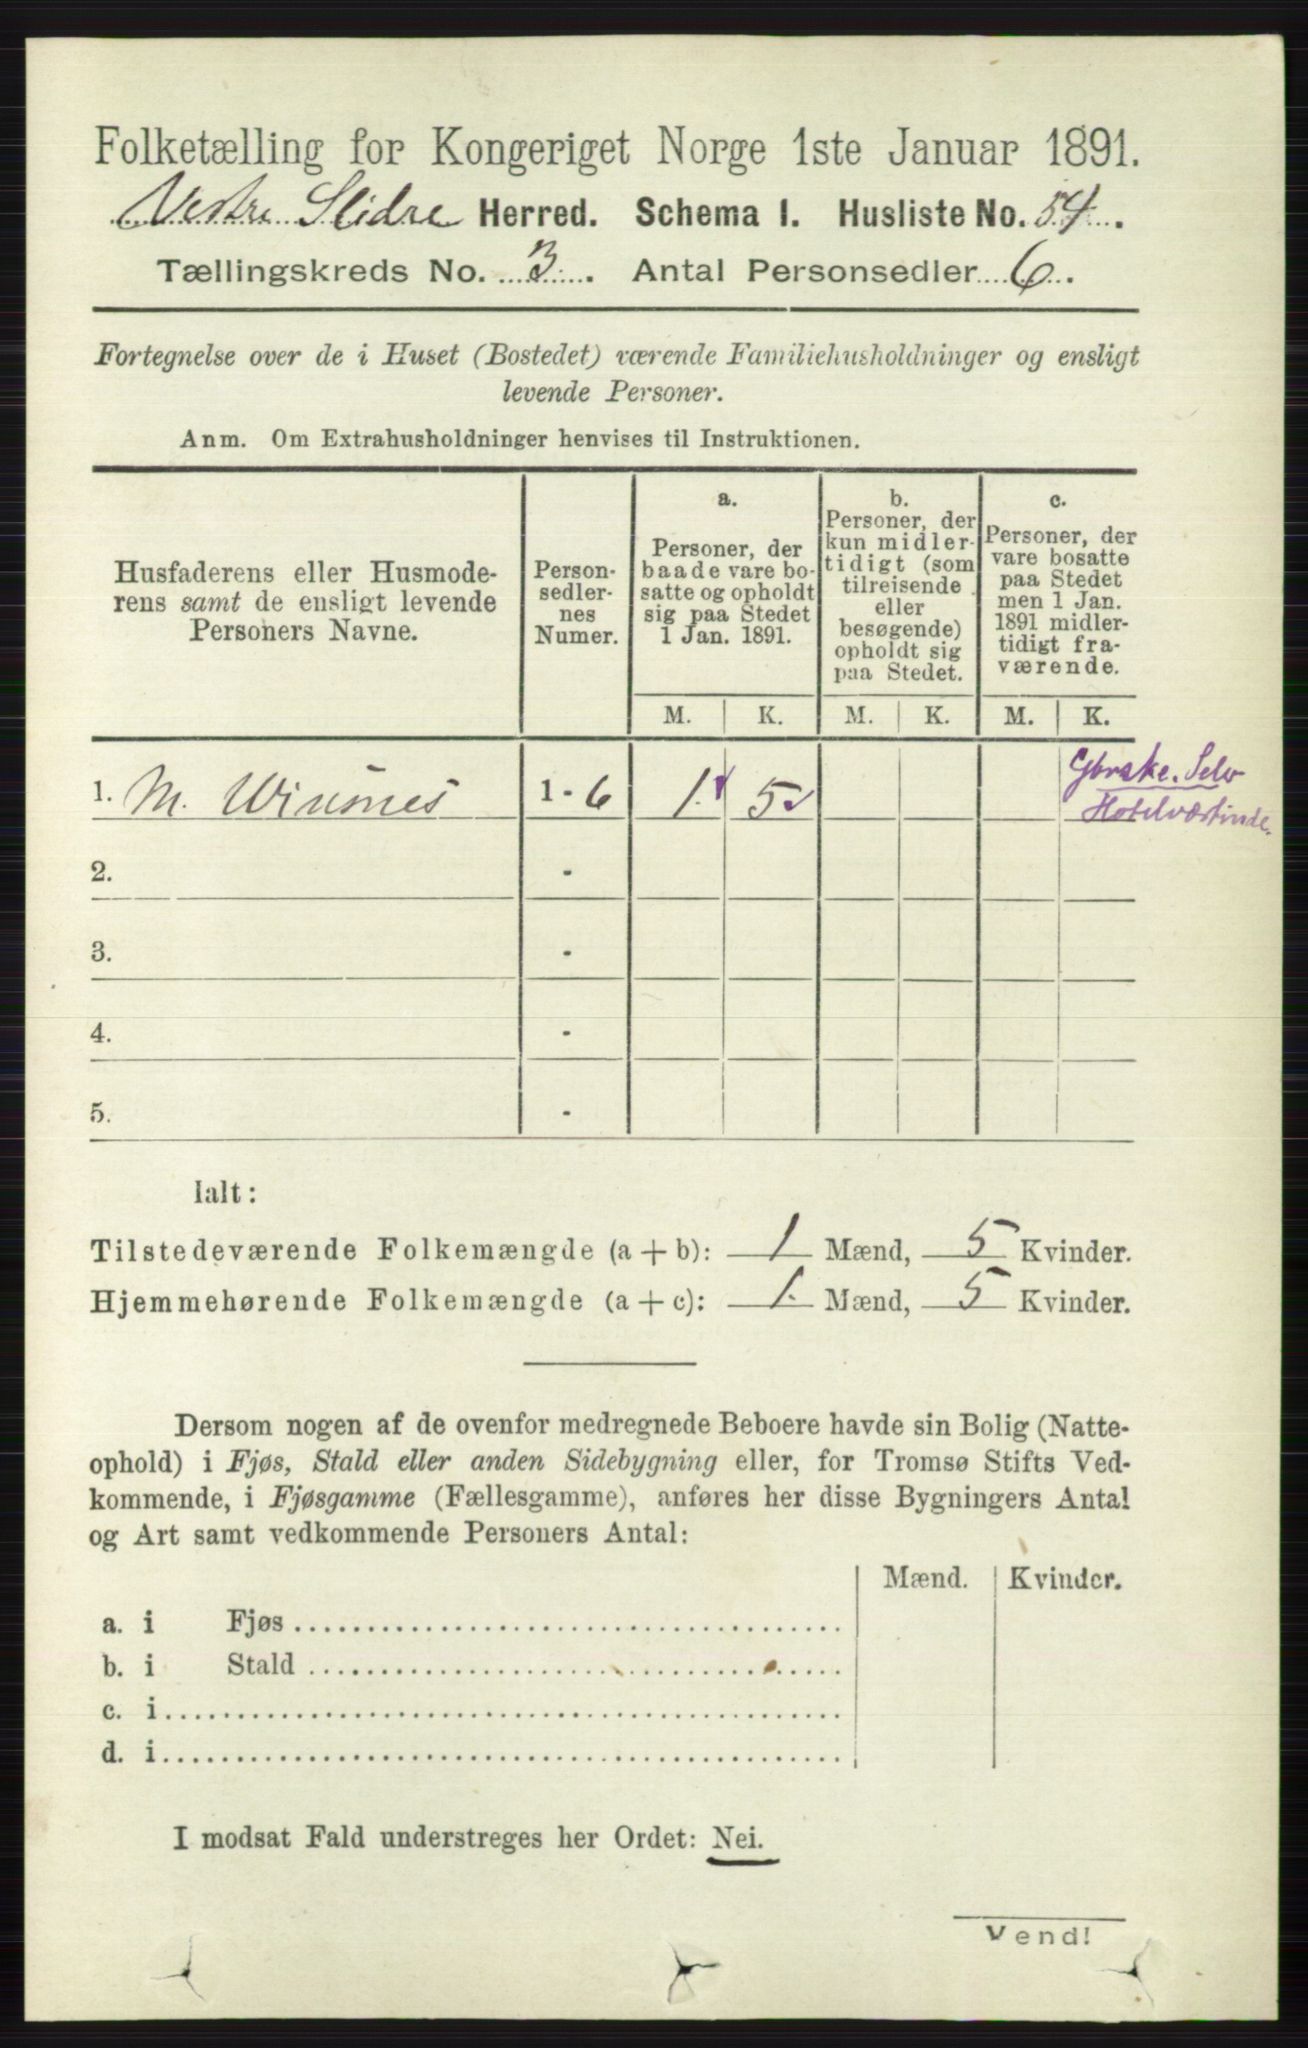 Folketælling for Kongeriget Norge 1ste Januar 1891.
Vestre Slidre Herred. Schema I. Husliste No. 54.
Tællingskreds No. 3. Antal Personsedler 6.
Fortegnelse over de i Huset (Bostedet) værende Familiehusholdninger og ensligt
levende Personer.
Anm. Om Extrahusholdninger henvises til Instruktionen.
Husfaderens eller Husmode-
rens samt de ensligt levende
Personers Navne.
Person-
sedler-
nes
Numer.
a.
Personer, der
baade vare bo-
satte og opholdt
sig paa Stedet
1 Jan. 1891.
b.
Personer, der
kun midler-
tidigt (som
tilreisende
eller
besøgende)
opholdt sig
paa Stedet.
c.
Personer, der
vare bosatte
paa Stedet
men 1 Jan.
1891 midler-
tidigt fra-
værende.
M. K. M. K. M. K.
1. M. Winsnes 1 - 6 1. 5 Selv
Hotelværtinde.
2. -
3. -
4. -
5. -
Ialt:
Tilstedeværende Folkemængde (a + b): 1 Mænd, 5 Kvinder.
Hjemmehørende Folkemængde (a + c): 1. Mænd, 5 Kvinder.
Dersom nogen af de ovenfor medregnede Beboere havde sin Bolig (Natte-
ophold) i Fjøs, Stald eller anden Sidebygning eller, for Tromsø Stifts Ved-
kommende, i Fjøsgamme (Fællesgamme), anføres her disse Bygningers Antal
og Art samt vedkommende Personers Antal:
Mænd. Kvinder.
a. i Fjøs
b. i Stald
c. i
d. i
I modsat Fald understreges her Ordet: Nei.
Vend!